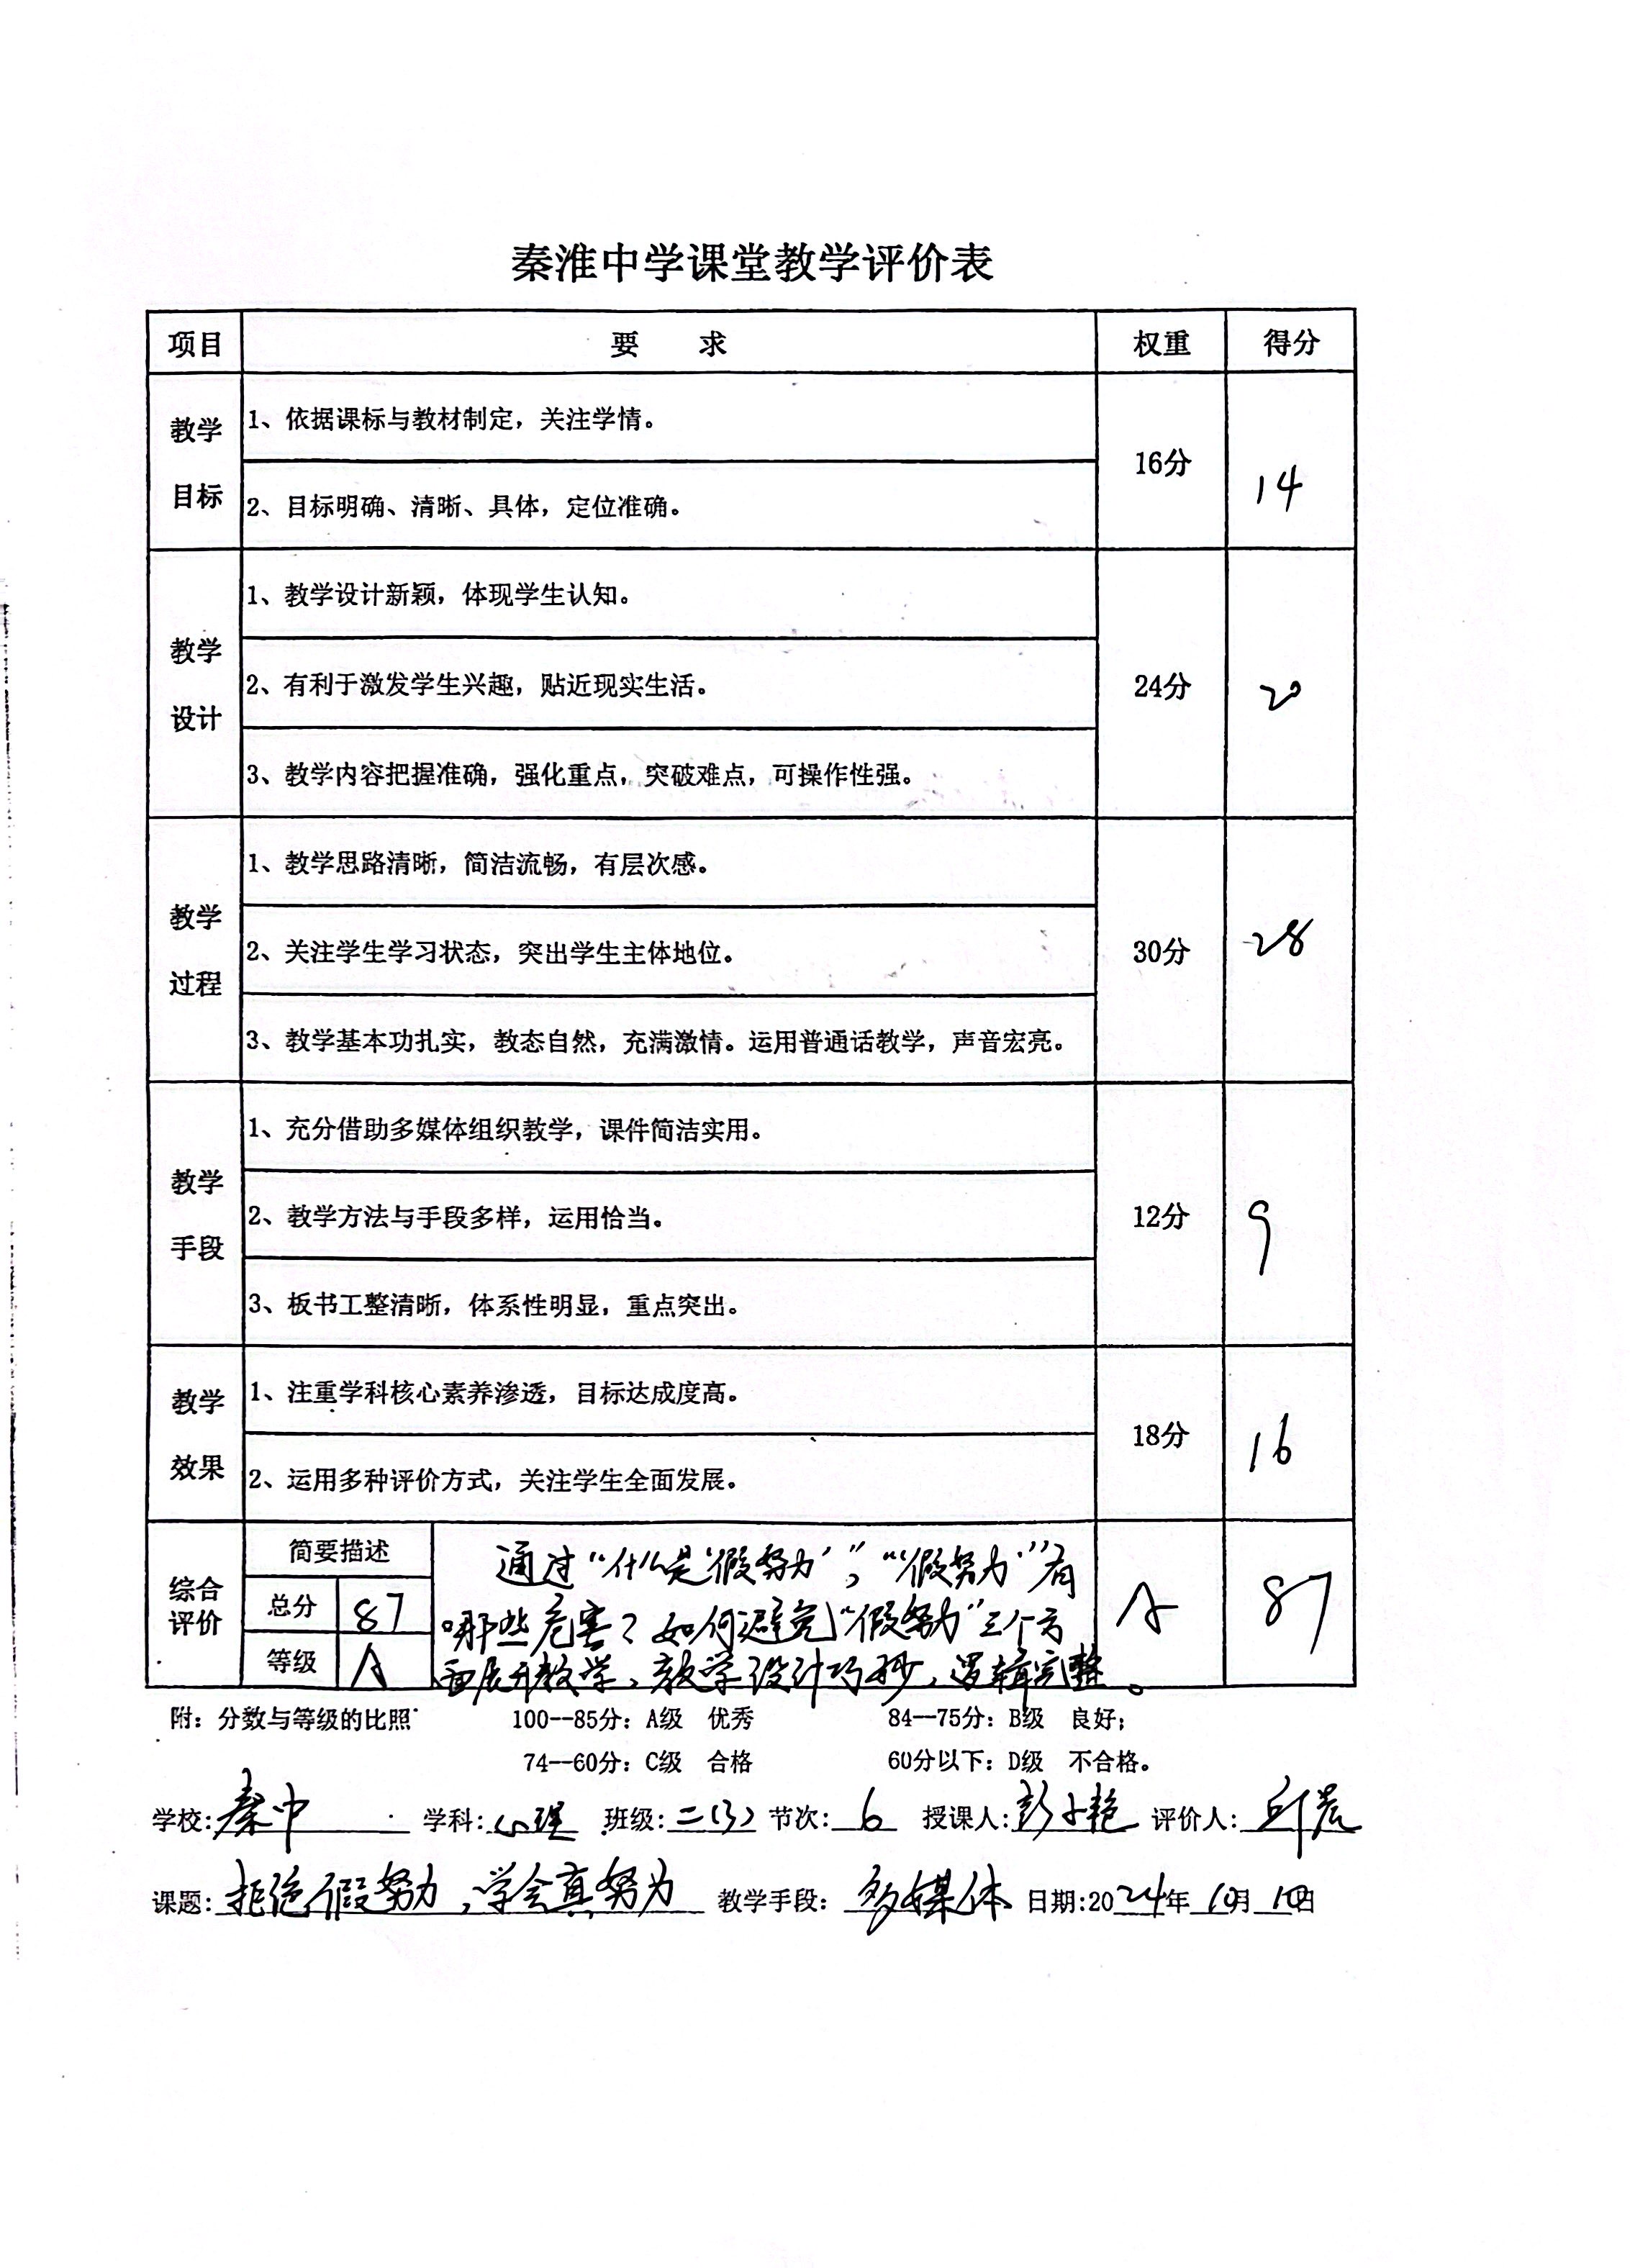 秦淮中学课堂教学评价表
项目 要 求 权重 得分
教学目标 1、依据课标与教材制定，关注学情。 16分 14
2、目标明确、清晰、具体，定位准确。
教学设计 1、教学设计新颖，体现学生认知。 24分 20
2、有利于激发学生兴趣，贴近现实生活。
3、教学内容把握准确，强化重点，突破难点，可操作性强。
教学过程 1、教学思路清晰，简洁流畅，有层次感。 30分 28
2、关注学生学习状态，突出学生主体地位。
3、教学基本功扎实，教态自然，充满激情。运用普通话教学，声音宏亮。
教学手段 1、充分借助多媒体组织教学，课件简洁实用。 12分 9
2、教学方法与手段多样，运用恰当。
3、板书工整清晰，体系性明显，重点突出。
教学效果 1、注重学科核心素养渗透，目标达成度高。 18分 16
2、运用多种评价方式，关注学生全面发展。
综合评价 简要描述 总分 87 等级 A
通过“什么是‘假努力’”，“‘假努力’”有
哪些危害？如何避免“假努力”三个方
面展开教学，教学设计巧妙，逻辑完整。
A 87
附：分数与等级的比照 100--85分：A级 优秀 84--75分：B级 良好；
74--60分：C级 合格 60分以下：D级 不合格。
学校:秦中 学科:心理 班级:二(3) 节次:6 授课人:彭子艳 评价人:
课题:拒绝假努力，学会真努力 教学手段：多媒体 日期:2024年10月10日